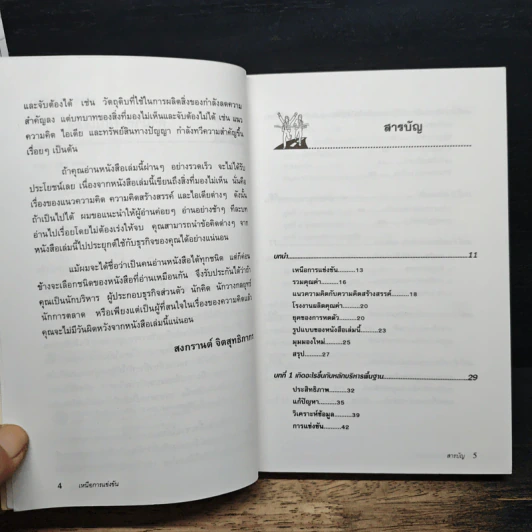 และจับต้องได้ เช่น วัตถุดิบที่ใช้ในการผลิตสิ่งของกำลังลดความ
สำคัญลง แต่บทบาทของสิ่งที่มองไม่เห็นและจับต้องไม่ได้ เช่น แนว
ความคิด ไอเดีย และทรัพย์สินทางปัญญา กำลังทวีความสำคัญขึ้น
เรื่อยๆ เป็นต้น
ถ้าคุณอ่านหนังสือเล่มนี้ผ่านๆ อย่างรวดเร็ว จะไม่ได้รับ
ประโยชน์เลย เนื่องจากหนังสือเล่มนี้เขียนถึงสิ่งที่มองไม่เห็น นั่นคือ
เรื่องของแนวความคิด ความคิดสร้างสรรค์ และไอเดียต่างๆ ดังนั้น
ถ้าเป็นไปได้ ผมขอแนะนำให้ผู้อ่านค่อยๆ อ่านอย่างช้าๆ ทีละบท
อ่านไปเรื่อยโดยไม่ต้องเร่งให้จบ คุณสามารถนำข้อคิดต่างๆ จาก
หนังสือเล่มนี้ไปประยุกต์ใช้กับธุรกิจของคุณได้อย่างแน่นอน
แม้ผมจะได้ชื่อว่าเป็นคนอ่านหนังสือได้ทุกชนิด แต่ก็ค่อน
ข้างจะเลือกชนิดของหนังสือที่อ่านเหมือนกัน จึงรับประกันได้ว่าถ้า
คุณเป็นนักบริหาร ผู้ประกอบธุรกิจส่วนตัว นักคิด นักวางกลยุทธ์
นักการตลาด หรือเพียงแต่เป็นผู้ที่สนใจในเรื่องของความคิดแล้ว
คุณจะไม่มีวันผิดหวังจากหนังสือเล่มนี้แน่นอน
สงกรานต์ จิตสุทธิภากร
4 เหนือการแข่งขัน
สารบัญ
บทนำ 11
เหนือการแข่งขัน.........13
รวมคุณค่า.........16
แนวความคิดกับความคิดสร้างสรรค์.........18
โรงงานผลิตคุณค่า.........20
ยุคของการหดตัว.........20
รูปแบบของหนังสือเล่มนี้.........23
มุมมองใหม่.........25
สรุป.........27
บทที่ 1 เกิดอะไรขึ้นกับหลักบริหารพื้นฐาน 29
ประสิทธิภาพ.........32
แก้ปัญหา.........35
วิเคราะห์ข้อมูล.........39
การแข่งขัน.........42
สารบัญ 5